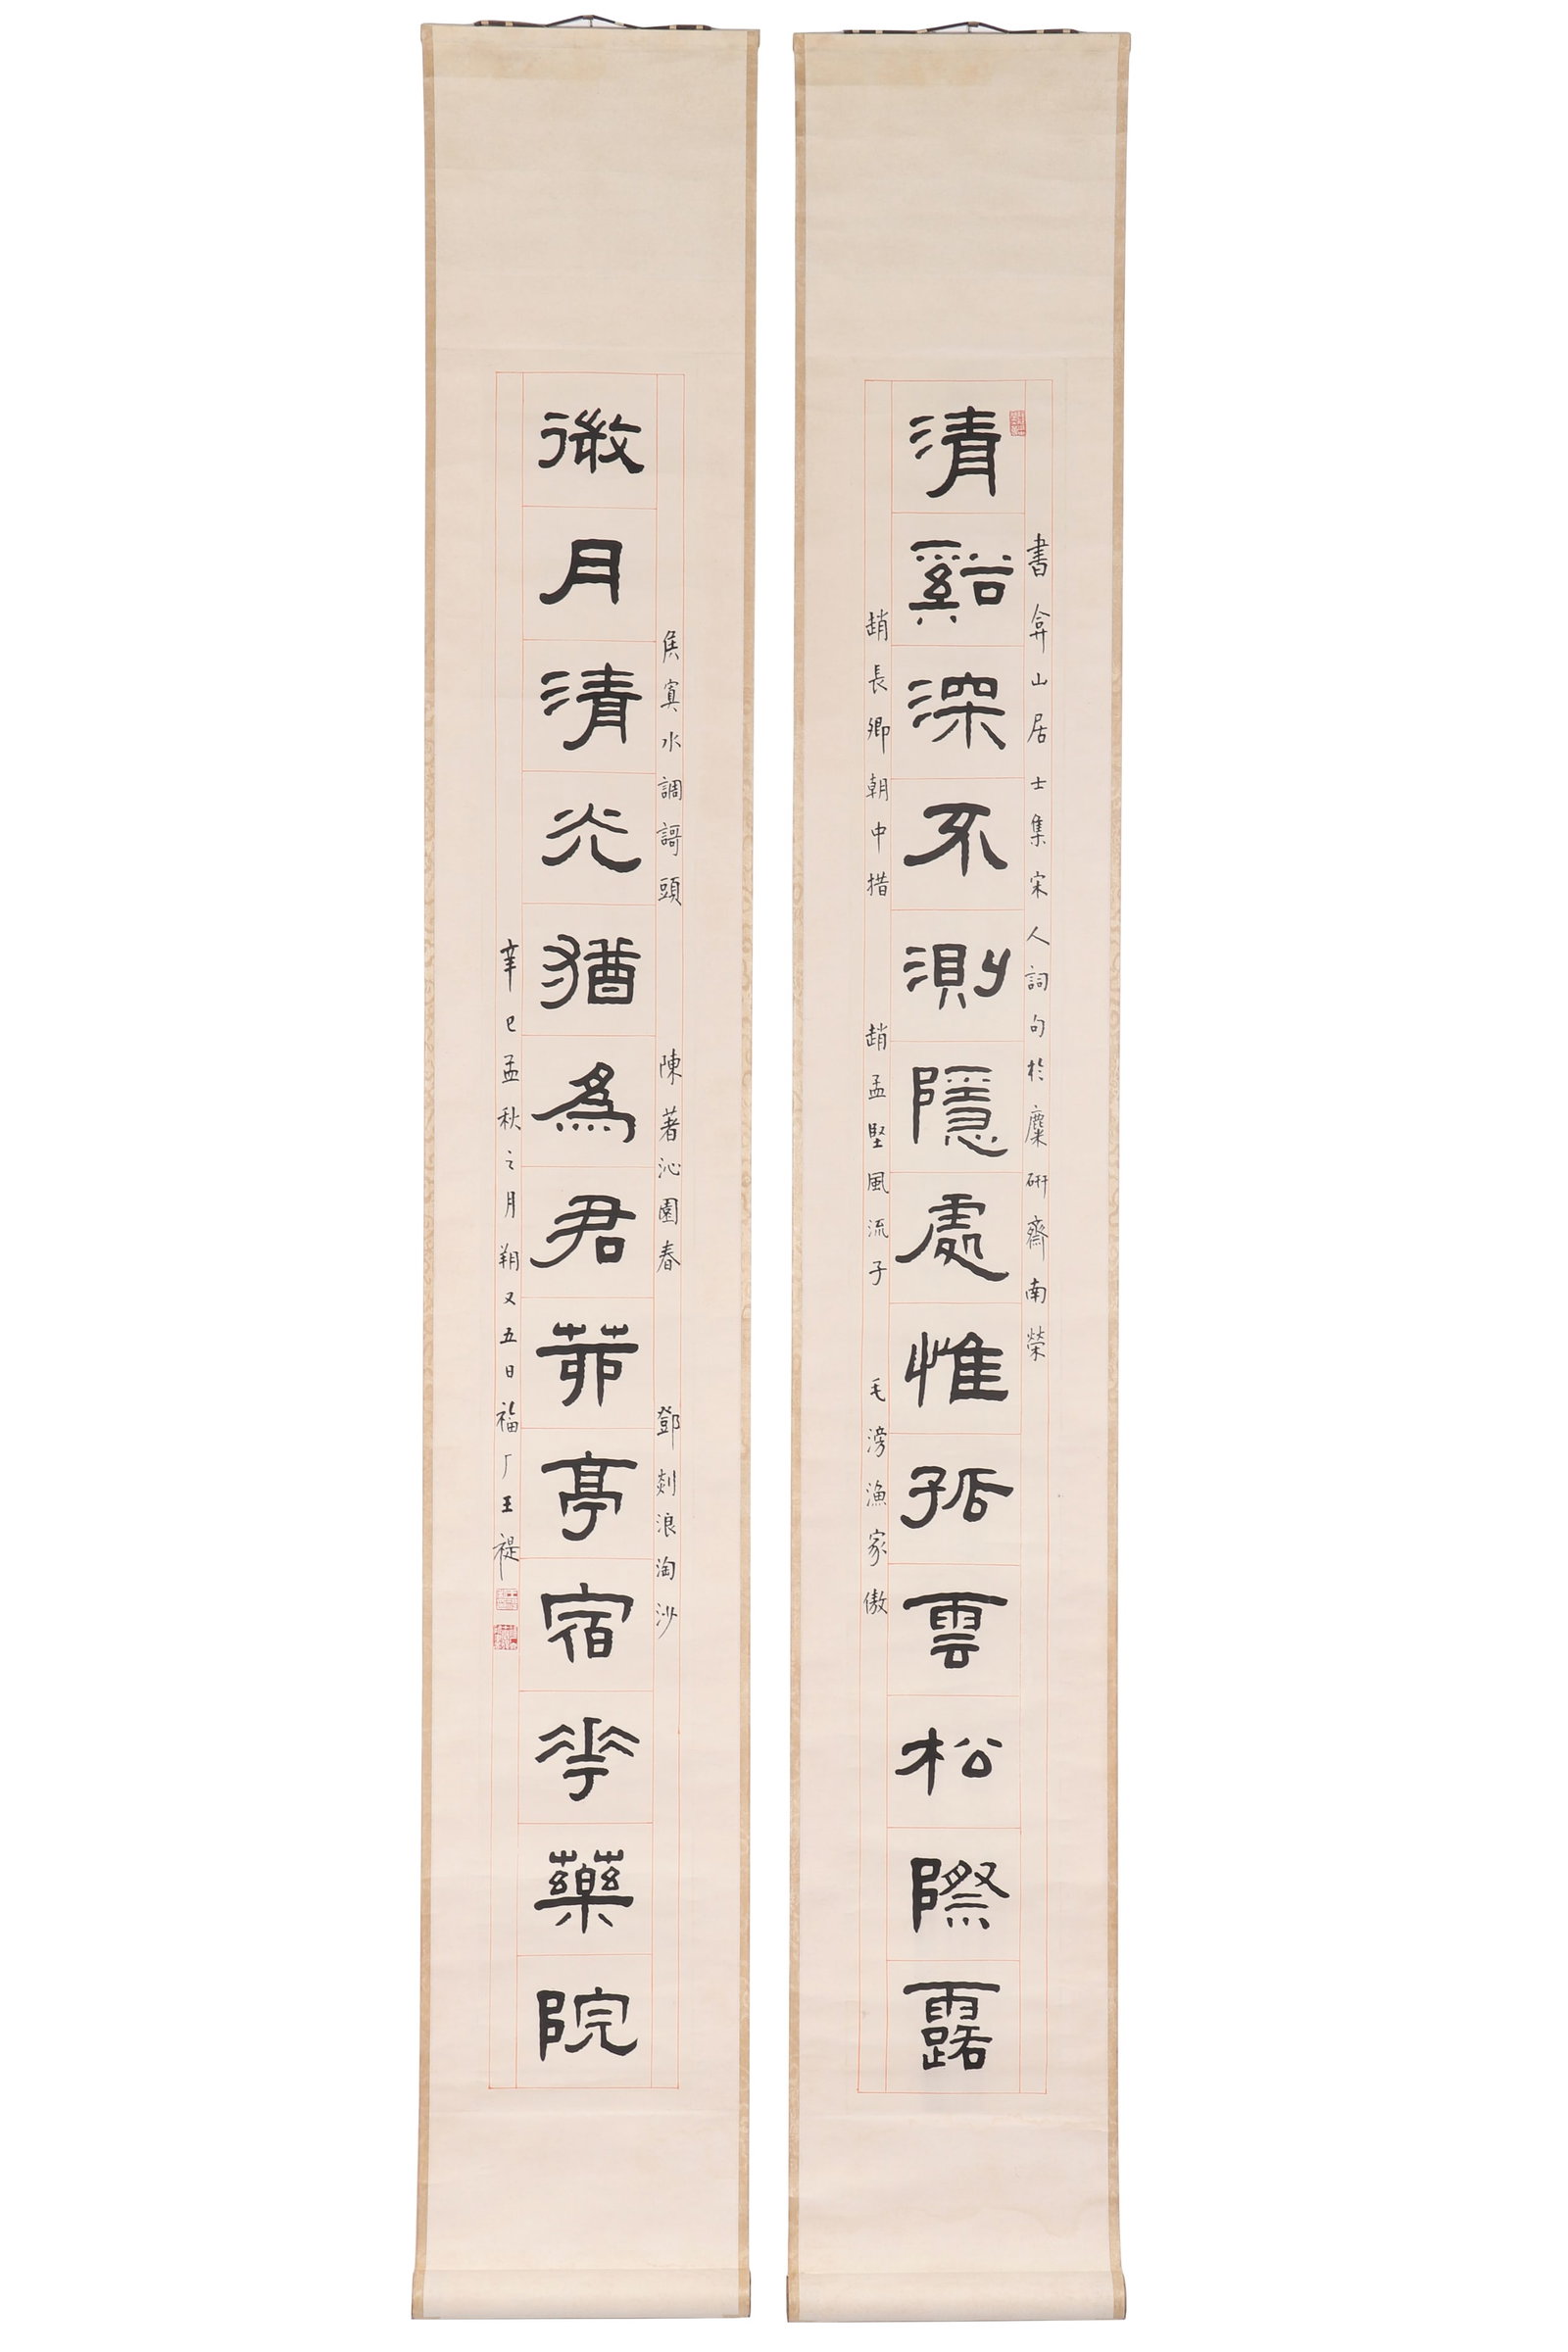 書弇山居士集宋人詞句於麋硏齋南榮
清谿深不測隱處惟孤雲松際露
趙長卿朝中措 趙孟堅風流子 毛滂漁家傲
矦寘水調謌頭 陳著沁園春 鄧剡浪淘沙
微月清光猶為君茆亭宿花藥院
辛巳孟秋之月朔又五日福厂王禔